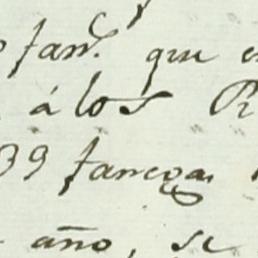 fan.s que
á los R
39 fanegas
año, se